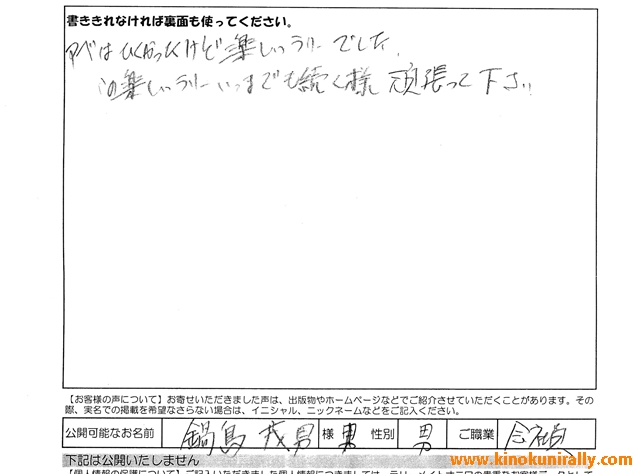 書ききれなければ裏面も使ってください。
アベはひくかったけど楽しいラリーでした。
この楽しいラリーいつまでも続く様 頑張って下さい
【お客様の声について】お寄せいただきました声は、出版物やホームページなどでご紹介させていただくことがあります。その
際、実名での掲載を希望なさらない場合は、イニシャル、ニックネームなどをご記入ください。
公開可能なお名前 鍋島 茂男 様 性別 男 ご職業 会社員
下記は公開いたしません
【個人情報の保護について】ご記入いただきました個人情報につきましては、ラリーメイトオニワの貴重なお客様データとして
www.kinokunirally.com